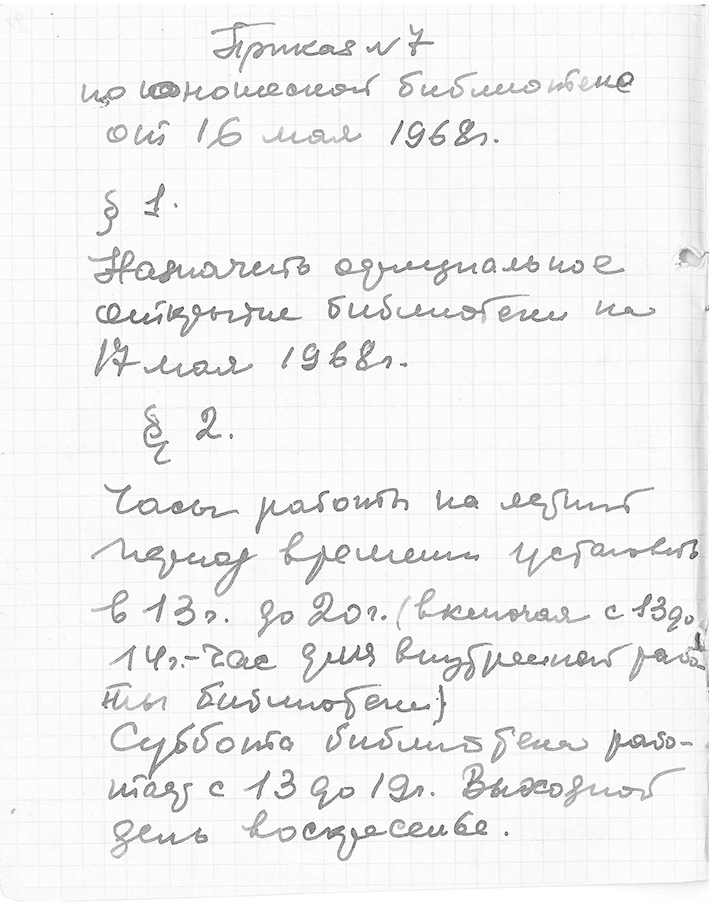 Приказ N 7
по юношеской библиотеке
от 16 мая 1968г.
§ 1.
Назначить официальное
открытие библиотеки на
17 мая 1968г.
§ 2.
Часы работы на летний
период времени установить
в 13г. до 20г. (включая с 13 до
14г.-час для внутренней рабо-
ты библиотеки)
Суббота библиотека рабо-
тает с 13 до 19г. Выходной
день воскресенье.